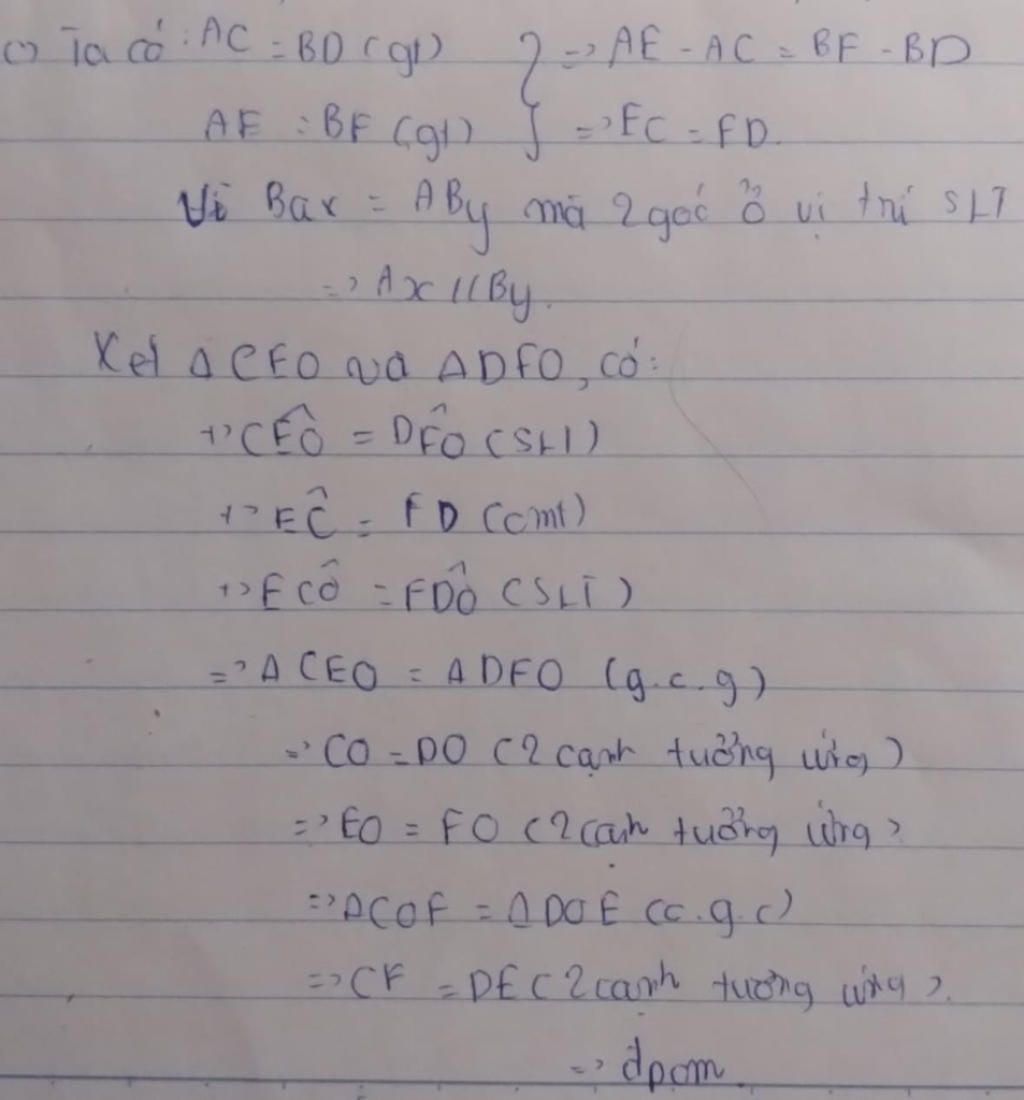 c) Ta có : AC = BD (gt) } => AE - AC = BF - BD
AE = BF (gt) } => EC = FD.
Vì Bax = ABy mà 2 góc ở vị trí SLT
=> Ax // By.
Xét Δ CEO và Δ DFO, có:
+> CÊO = DF̂O (SLT)
+> EĈ = FD (cmt)
+> ECÔ = FDÔ (SLT)
=> Δ CEO = Δ DFO (g.c.g)
=> CO = DO (2 cạnh tưởng ứng)
=> EO = FO (2 cạnh tưởng ứng)
=> Δ COF = Δ DOE (c.g.c)
=> CF = DE (2 cạnh tương ứng).
=> đpcm